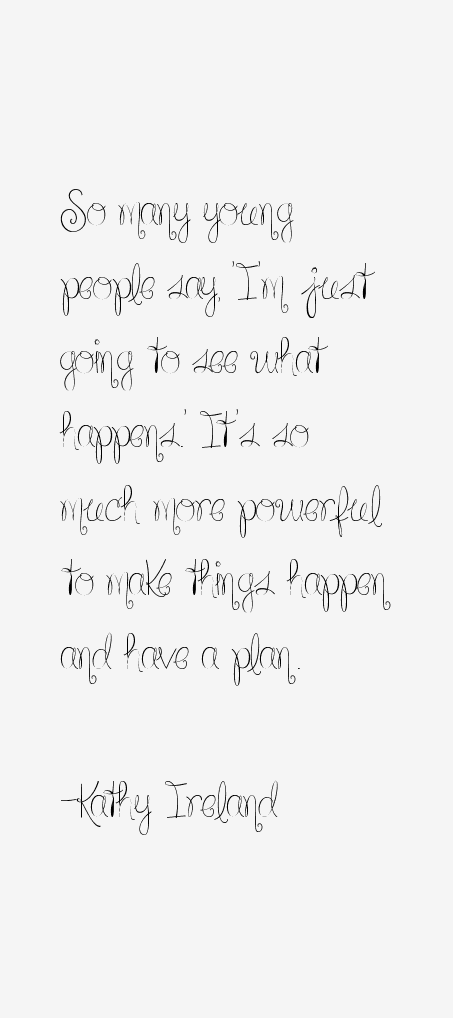 So many young
people say, 'I'm just
going to see what
happens.' It's so
much more powerful
to make things happen
and have a plan.
-Kathy Ireland